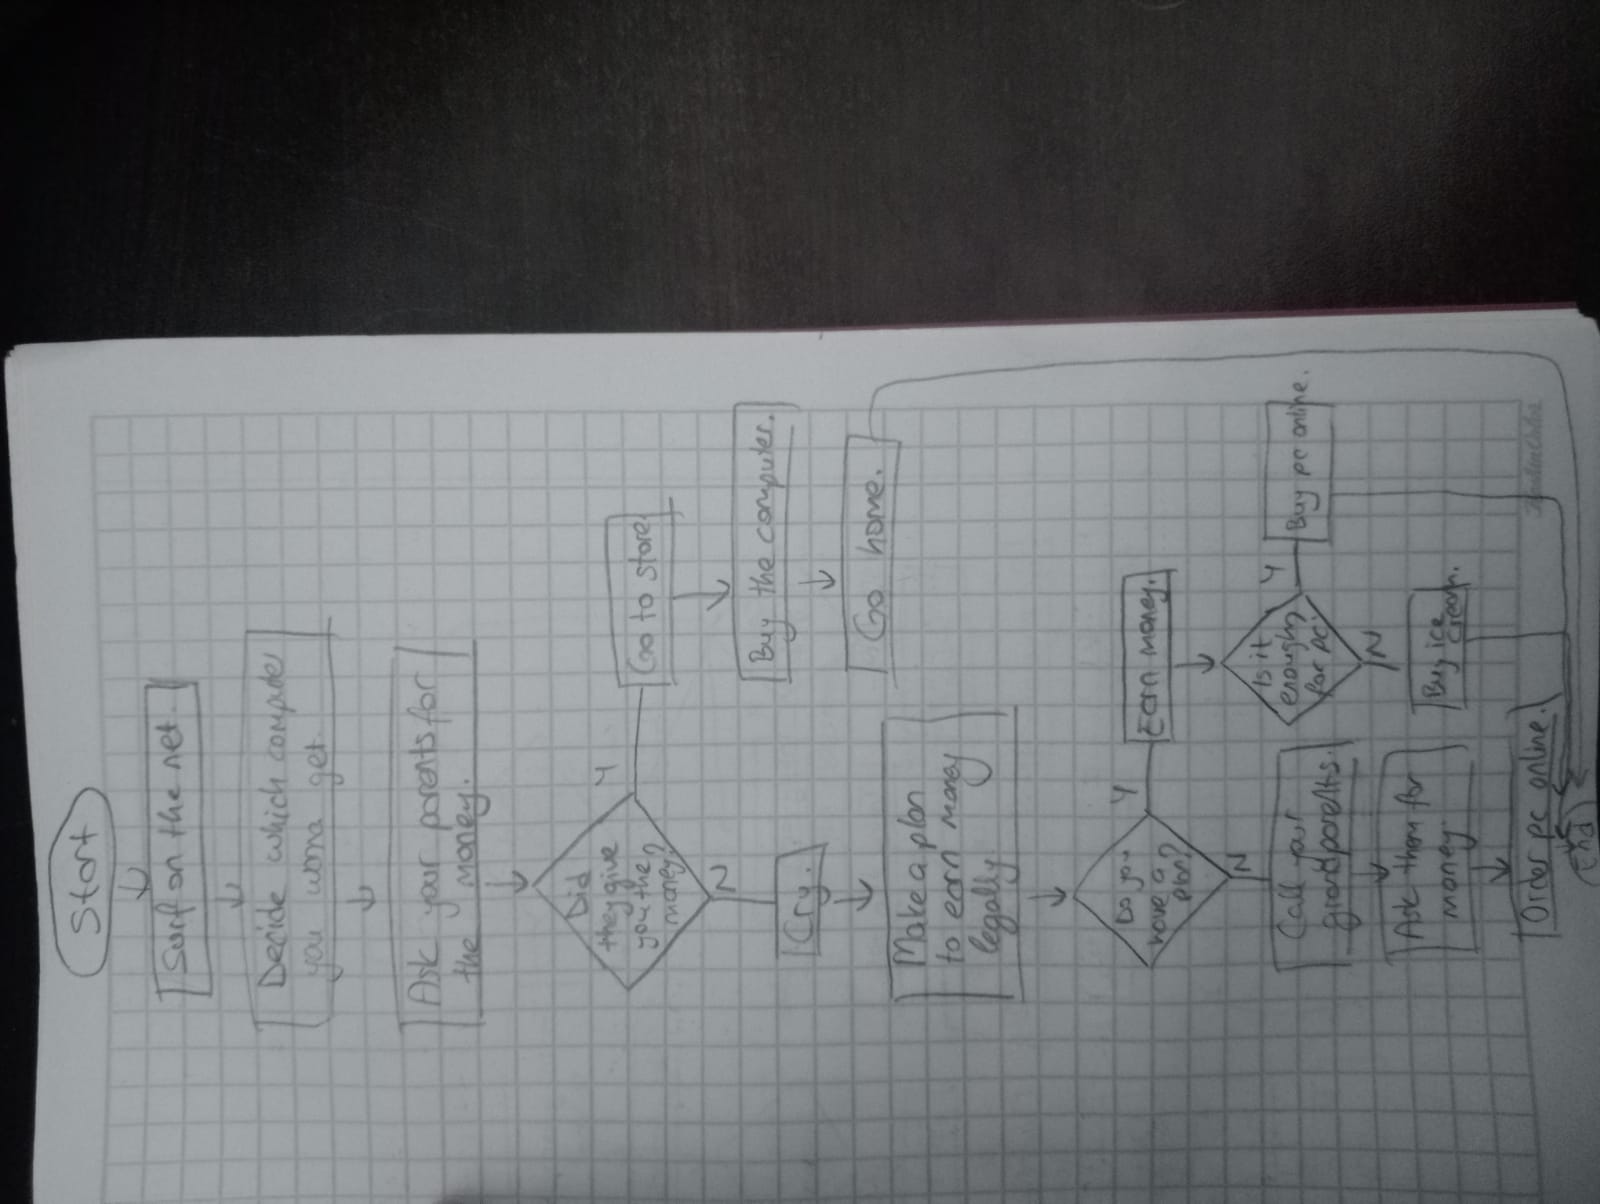 Start
Surf on the net.
Decide which computer
you wona get.
Ask your parents for
the money.
Did
they give
you the
money?
Y
Go to store.
Buy the computer.
Go home.
N
Cry.
Make a plan
to earn money
legally.
Do you
have a
plan?
Y
Earn money.
Is it
enough
for pc?
Y
Buy pc online.
N
Buy ice
cream.
N
Call your
grandparents.
Ask them for
money.
Order pc online.
End